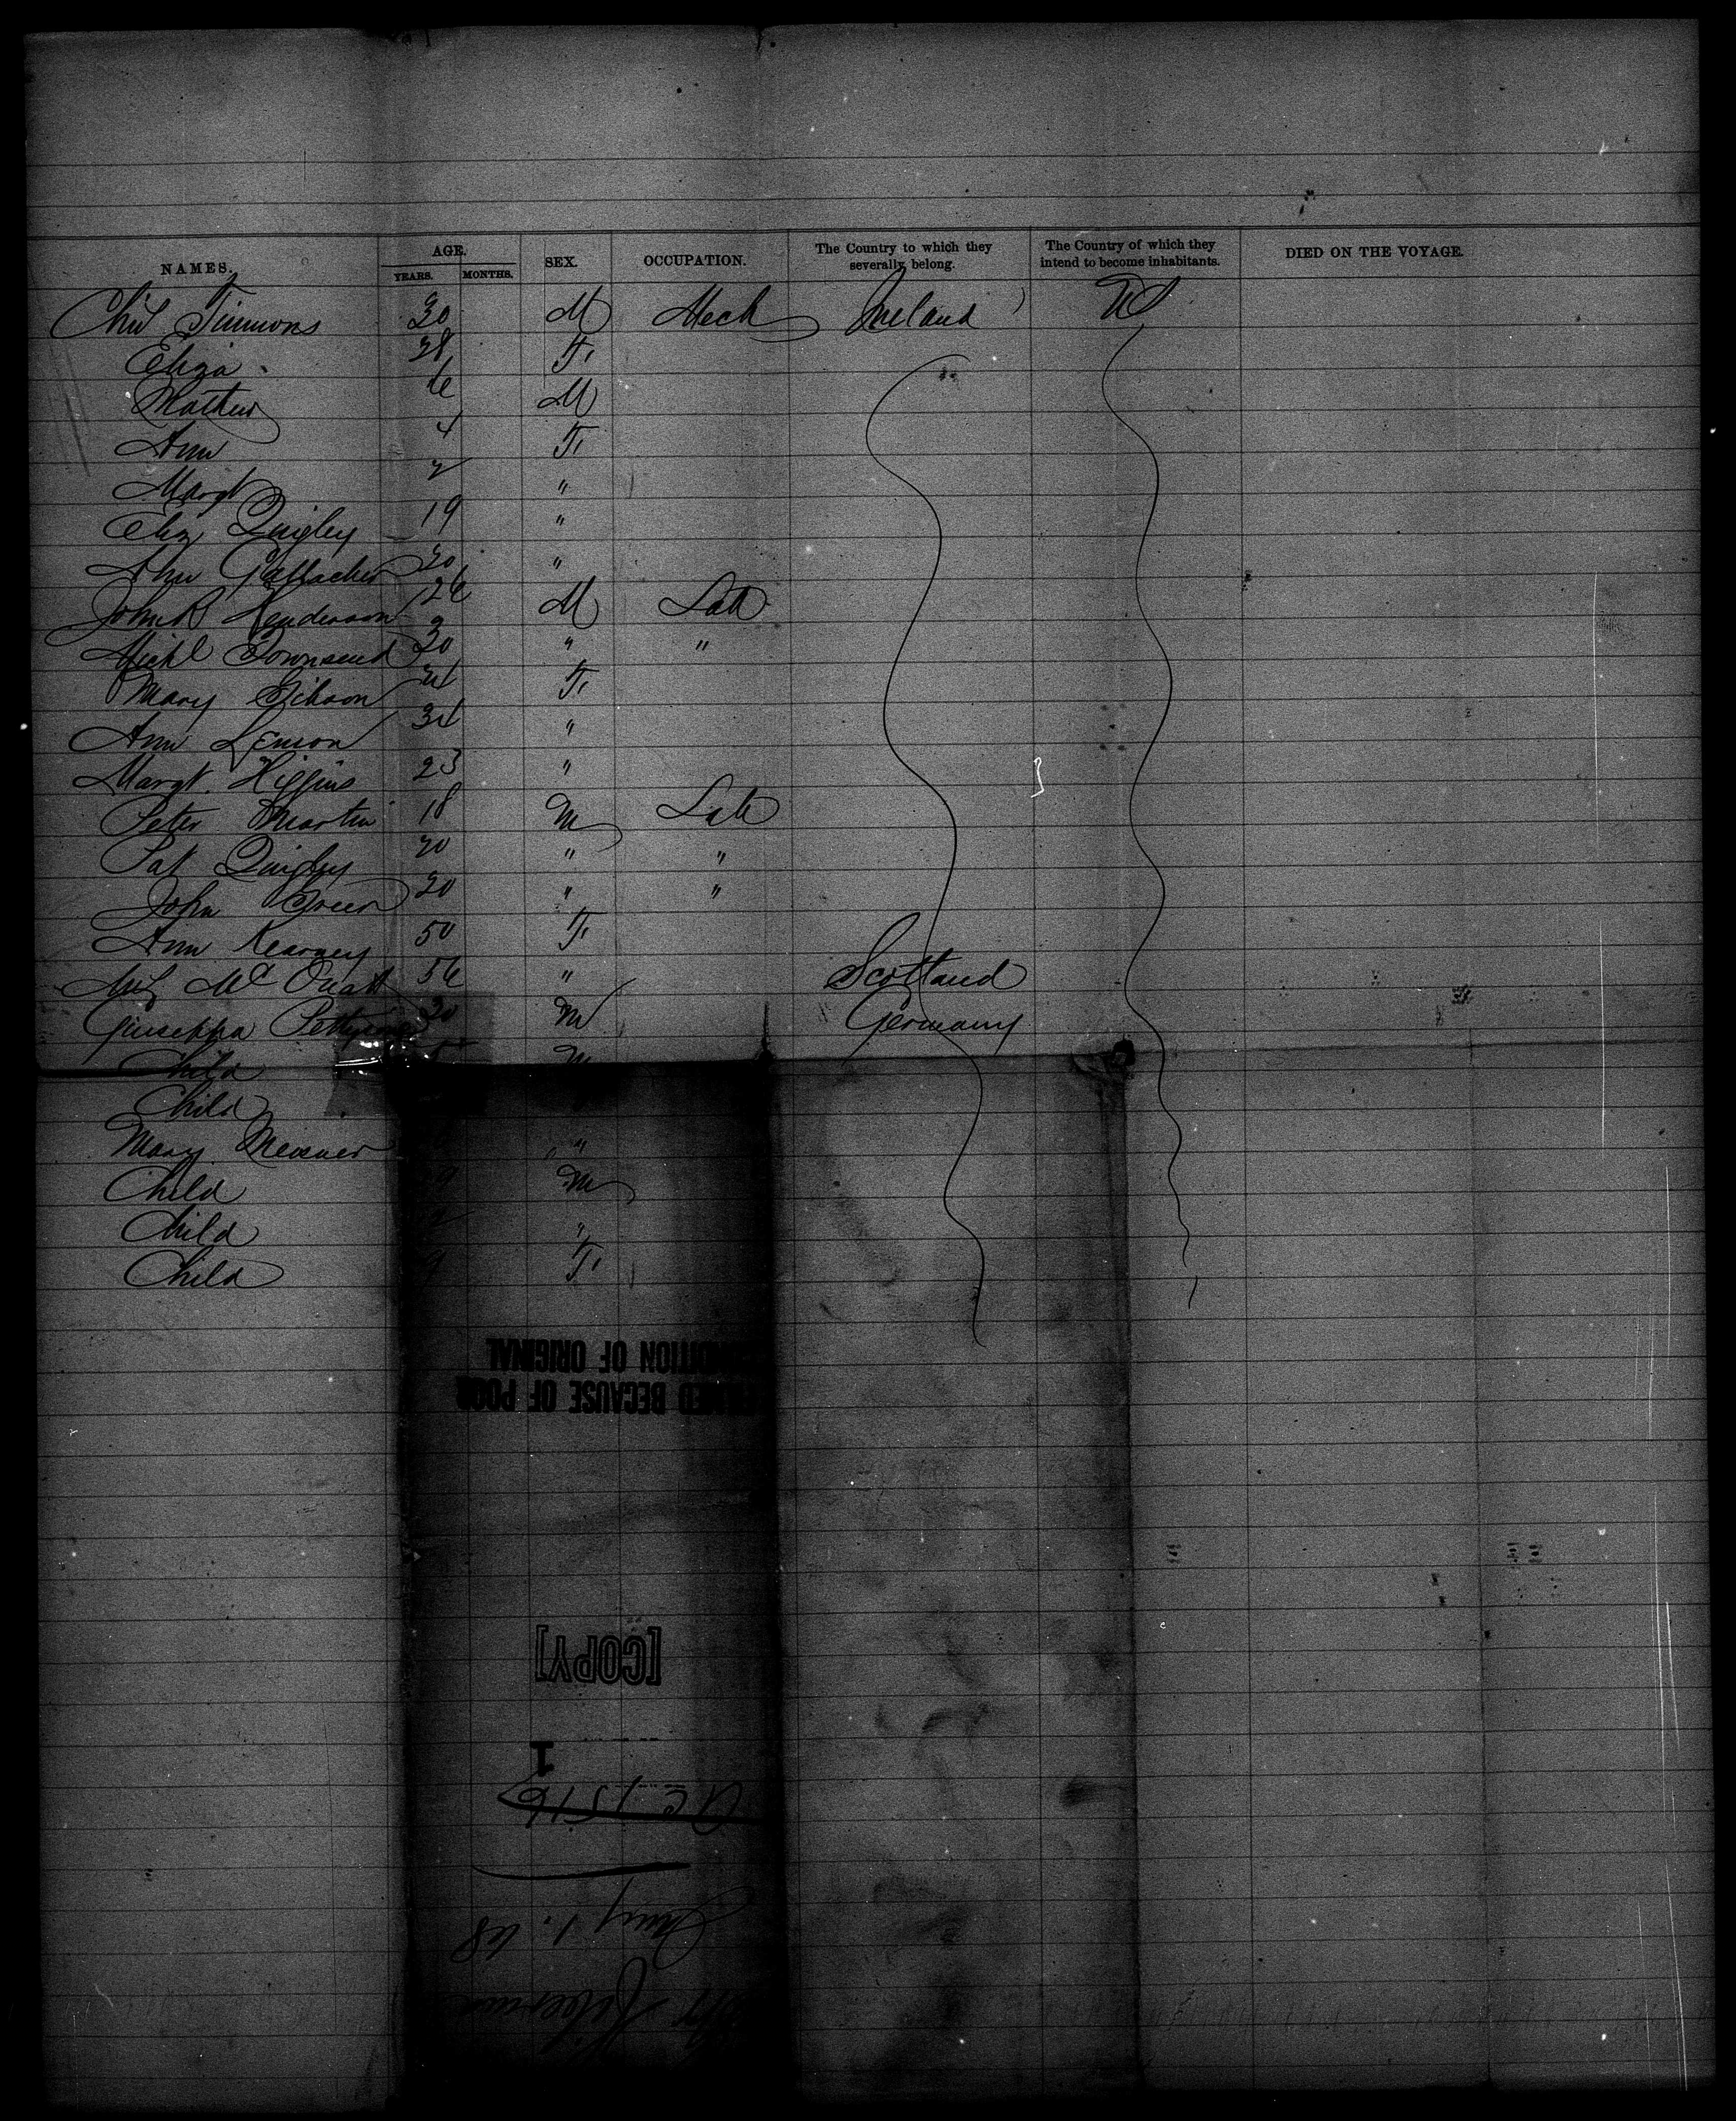 NAMES. AGE. YEARS. MONTHS. SEX. OCCUPATION. The Country to which they severally belong. The Country of which they intend to become inhabitants. DIED ON THE VOYAGE.
Timmons 30 M Mech Ireland US
Eliza 28 F
Mathew 6 M
Ann 4 F
Margt 2 "
Eliz Quigley 19 "
Ann Gallacher 20 "
John R Henderson 26 M Lab
Michl Townsend 30 " "
Mary Gibson 24 F
Ann Lemon 34 "
Margt. Higgins 23 "
Peter Martin 18 M Lab
Pat Quigley 20 " "
John Green 20 " "
Ann Kearney 50 F
Mc 56 " Scotland
Giuseppa 30 M Germany
Child M
Child
Mary "
Child 9 M
Child "
Child 9 F
CONDITION OF ORIGINAL
BECAUSE OF POOR
[COPY]
1